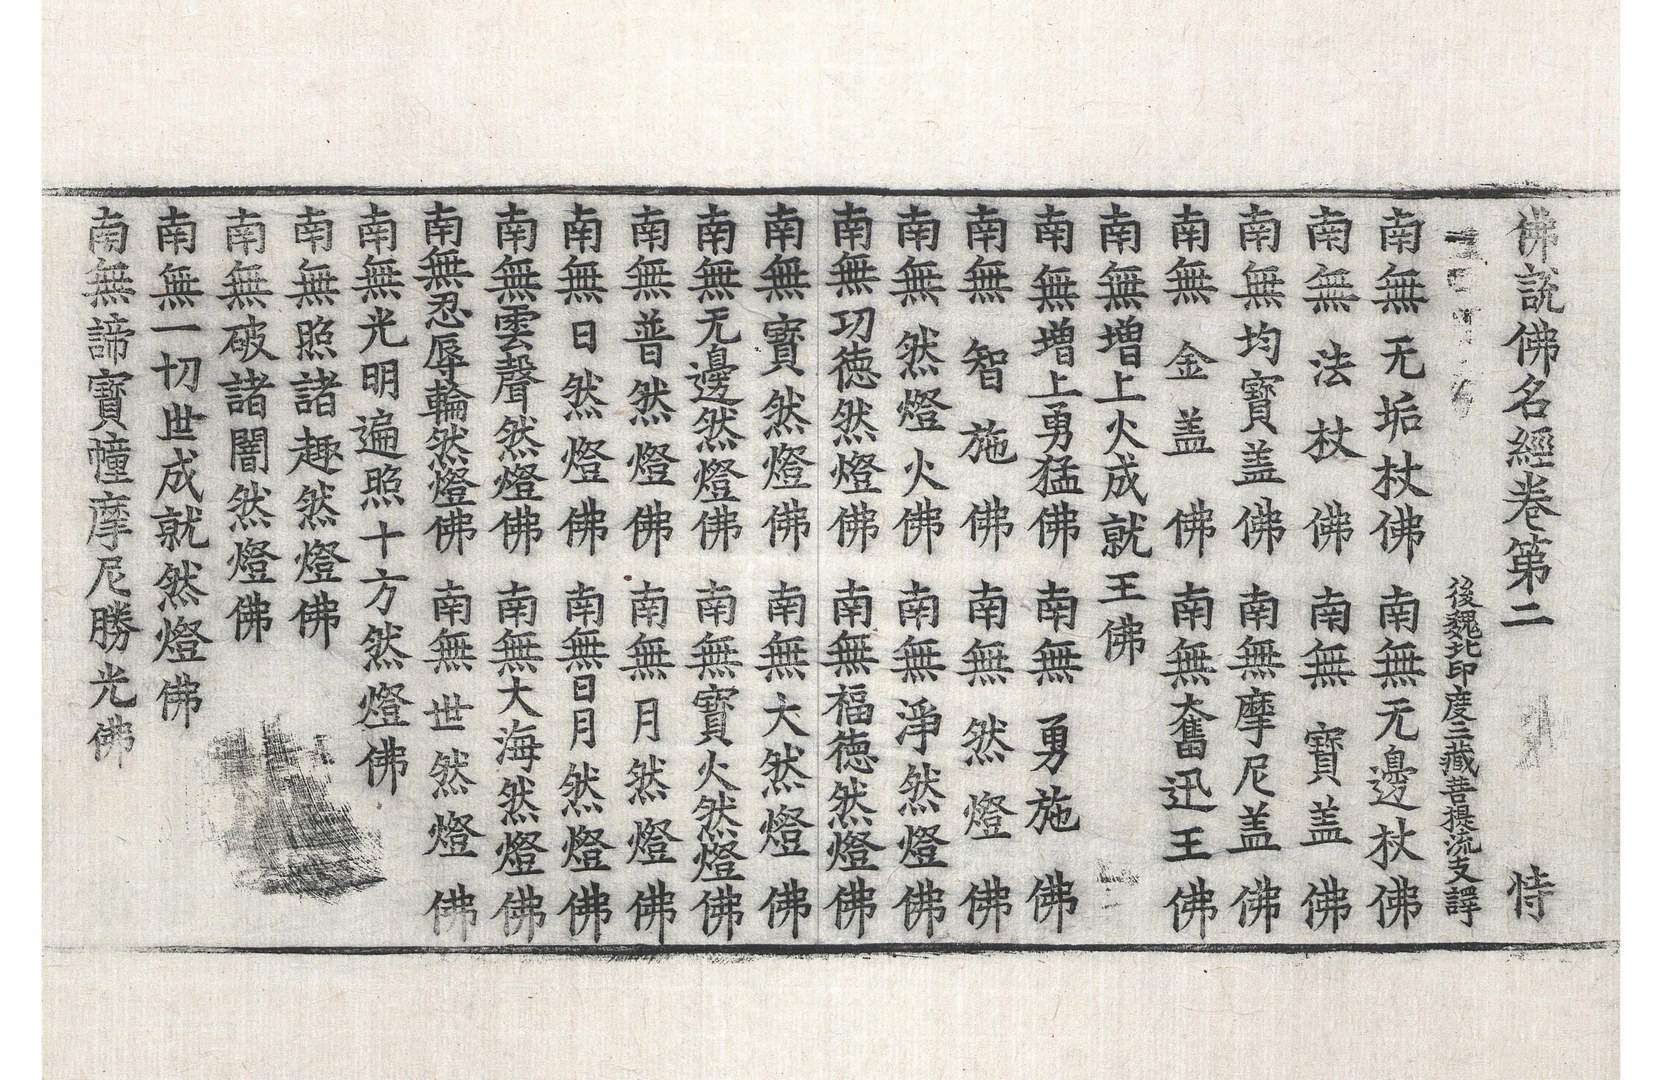 佛說佛名經卷第二 恃
後魏北印度三藏菩提流支譯
南無无垢杖佛 南無无邊杖佛
南無法杖佛 南無寶盖佛
南無均寶盖佛 南無摩尼盖佛
南無金盖佛 南無大奮迅王佛
南無增上火成就王佛
南無增上勇猛佛 南無勇施佛
南無智施佛 南無然燈佛
南無然燈火佛 南無淨然燈佛
南無功德然燈佛 南無福德然燈佛
南無寶然燈佛 南無大然燈佛
南無无邊然燈佛 南無寶火然燈佛
南無普然燈佛 南無月然燈佛
南無日然燈佛 南無日月然燈佛
南無雲聲然燈佛 南無大海然燈佛
南無忍辱輪然燈佛 南無世然燈佛
南無光明遍照十方然燈佛
南無照諸趣然燈佛
南無破諸闇然燈佛
南無一切世成就然燈佛
南無諦寶幢摩尼勝光佛